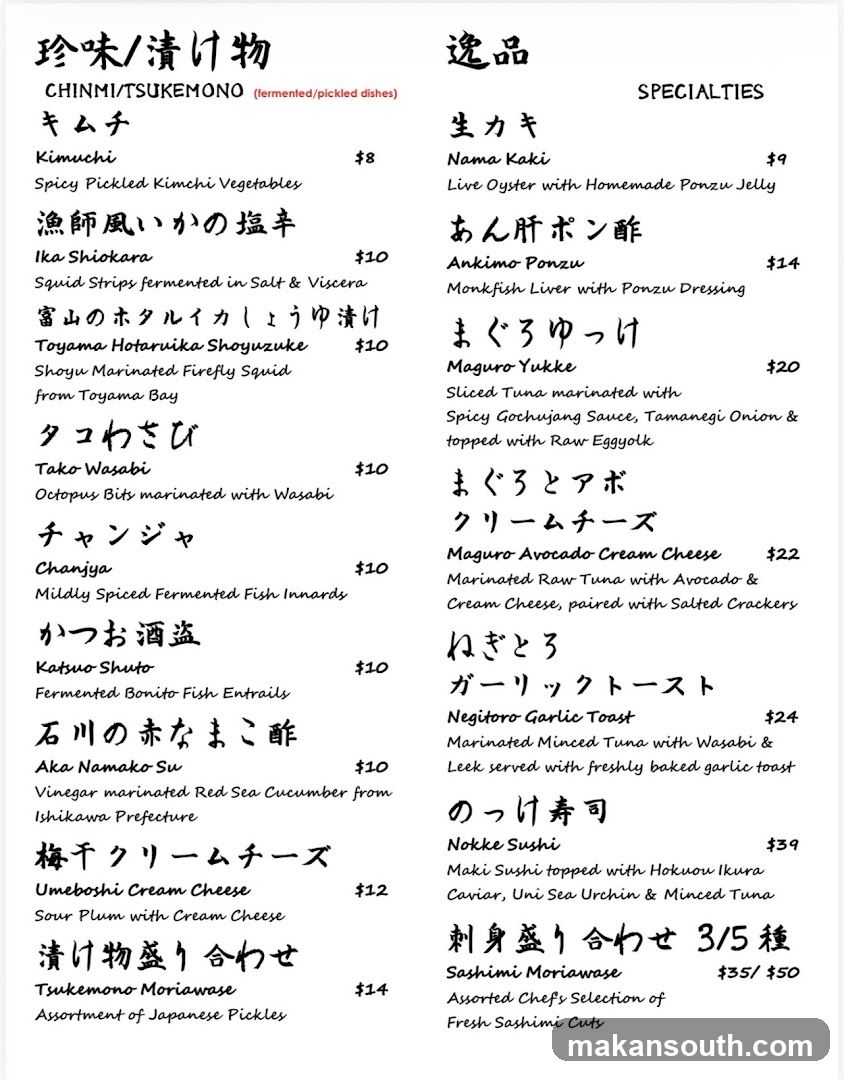 珍味/漬け物
CHINMI/TSUKEMONO (fermented/pickled dishes)
キムチ
Kimuchi $8
Spicy Pickled Kimchi Vegetables
漁師風いかの塩辛
Ika Shiokara $10
Squid Strips fermented in Salt & Viscera
富山のホタルイカしょうゆ漬け
Toyama Hotaruika Shoyuzuke $10
Shoyu Marinated Firefly Squid
from Toyama Bay
タコわさび
Tako Wasabi $10
Octopus Bits marinated with Wasabi
チャンジャ
Chanjya $10
Mildly Spiced Fermented Fish Innards
かつお酒盗
Katsuo Shuto $10
Fermented Bonito Fish Entrails
石川の赤なまこ酢
Aka Namako Su $10
Vinegar marinated Red Sea Cucumber from
Ishikawa Prefecture
梅干クリームチーズ
Umeboshi Cream Cheese $12
Sour Plum with Cream Cheese
漬け物盛り合わせ
Tsukemono Moriawase $14
Assortment of Japanese Pickles
逸品
SPECIALTIES
生カキ
Nama Kaki $9
Live Oyster with Homemade Ponzu Jelly
あん肝ポン酢
Ankimo Ponzu $14
Monkfish Liver with Ponzu Dressing
まぐろゆっけ
Maguro Yukke $20
Sliced Tuna marinated with
Spicy Gochujang Sauce, Tamanegi Onion &
topped with Raw Eggyolk
まぐろとアボ
クリームチーズ
Maguro Avocado Cream Cheese $22
Marinated Raw Tuna with Avocado &
Cream Cheese, paired with Salted Crackers
ねぎとろ
ガーリックトースト
Negitoro Garlic Toast $24
Marinated Minced Tuna with Wasabi &
Leek served with freshly baked garlic toast
のっけ寿司
Nokke Sushi $39
Maki Sushi topped with Hokuou Ikura
Caviar, Uni Sea Urchin & Minced Tuna
刺身盛り合わせ 3/5種
Sashimi Moriawase $35/ $50
Assorted Chef's Selection of
Fresh Sashimi Cuts
makansouth.com